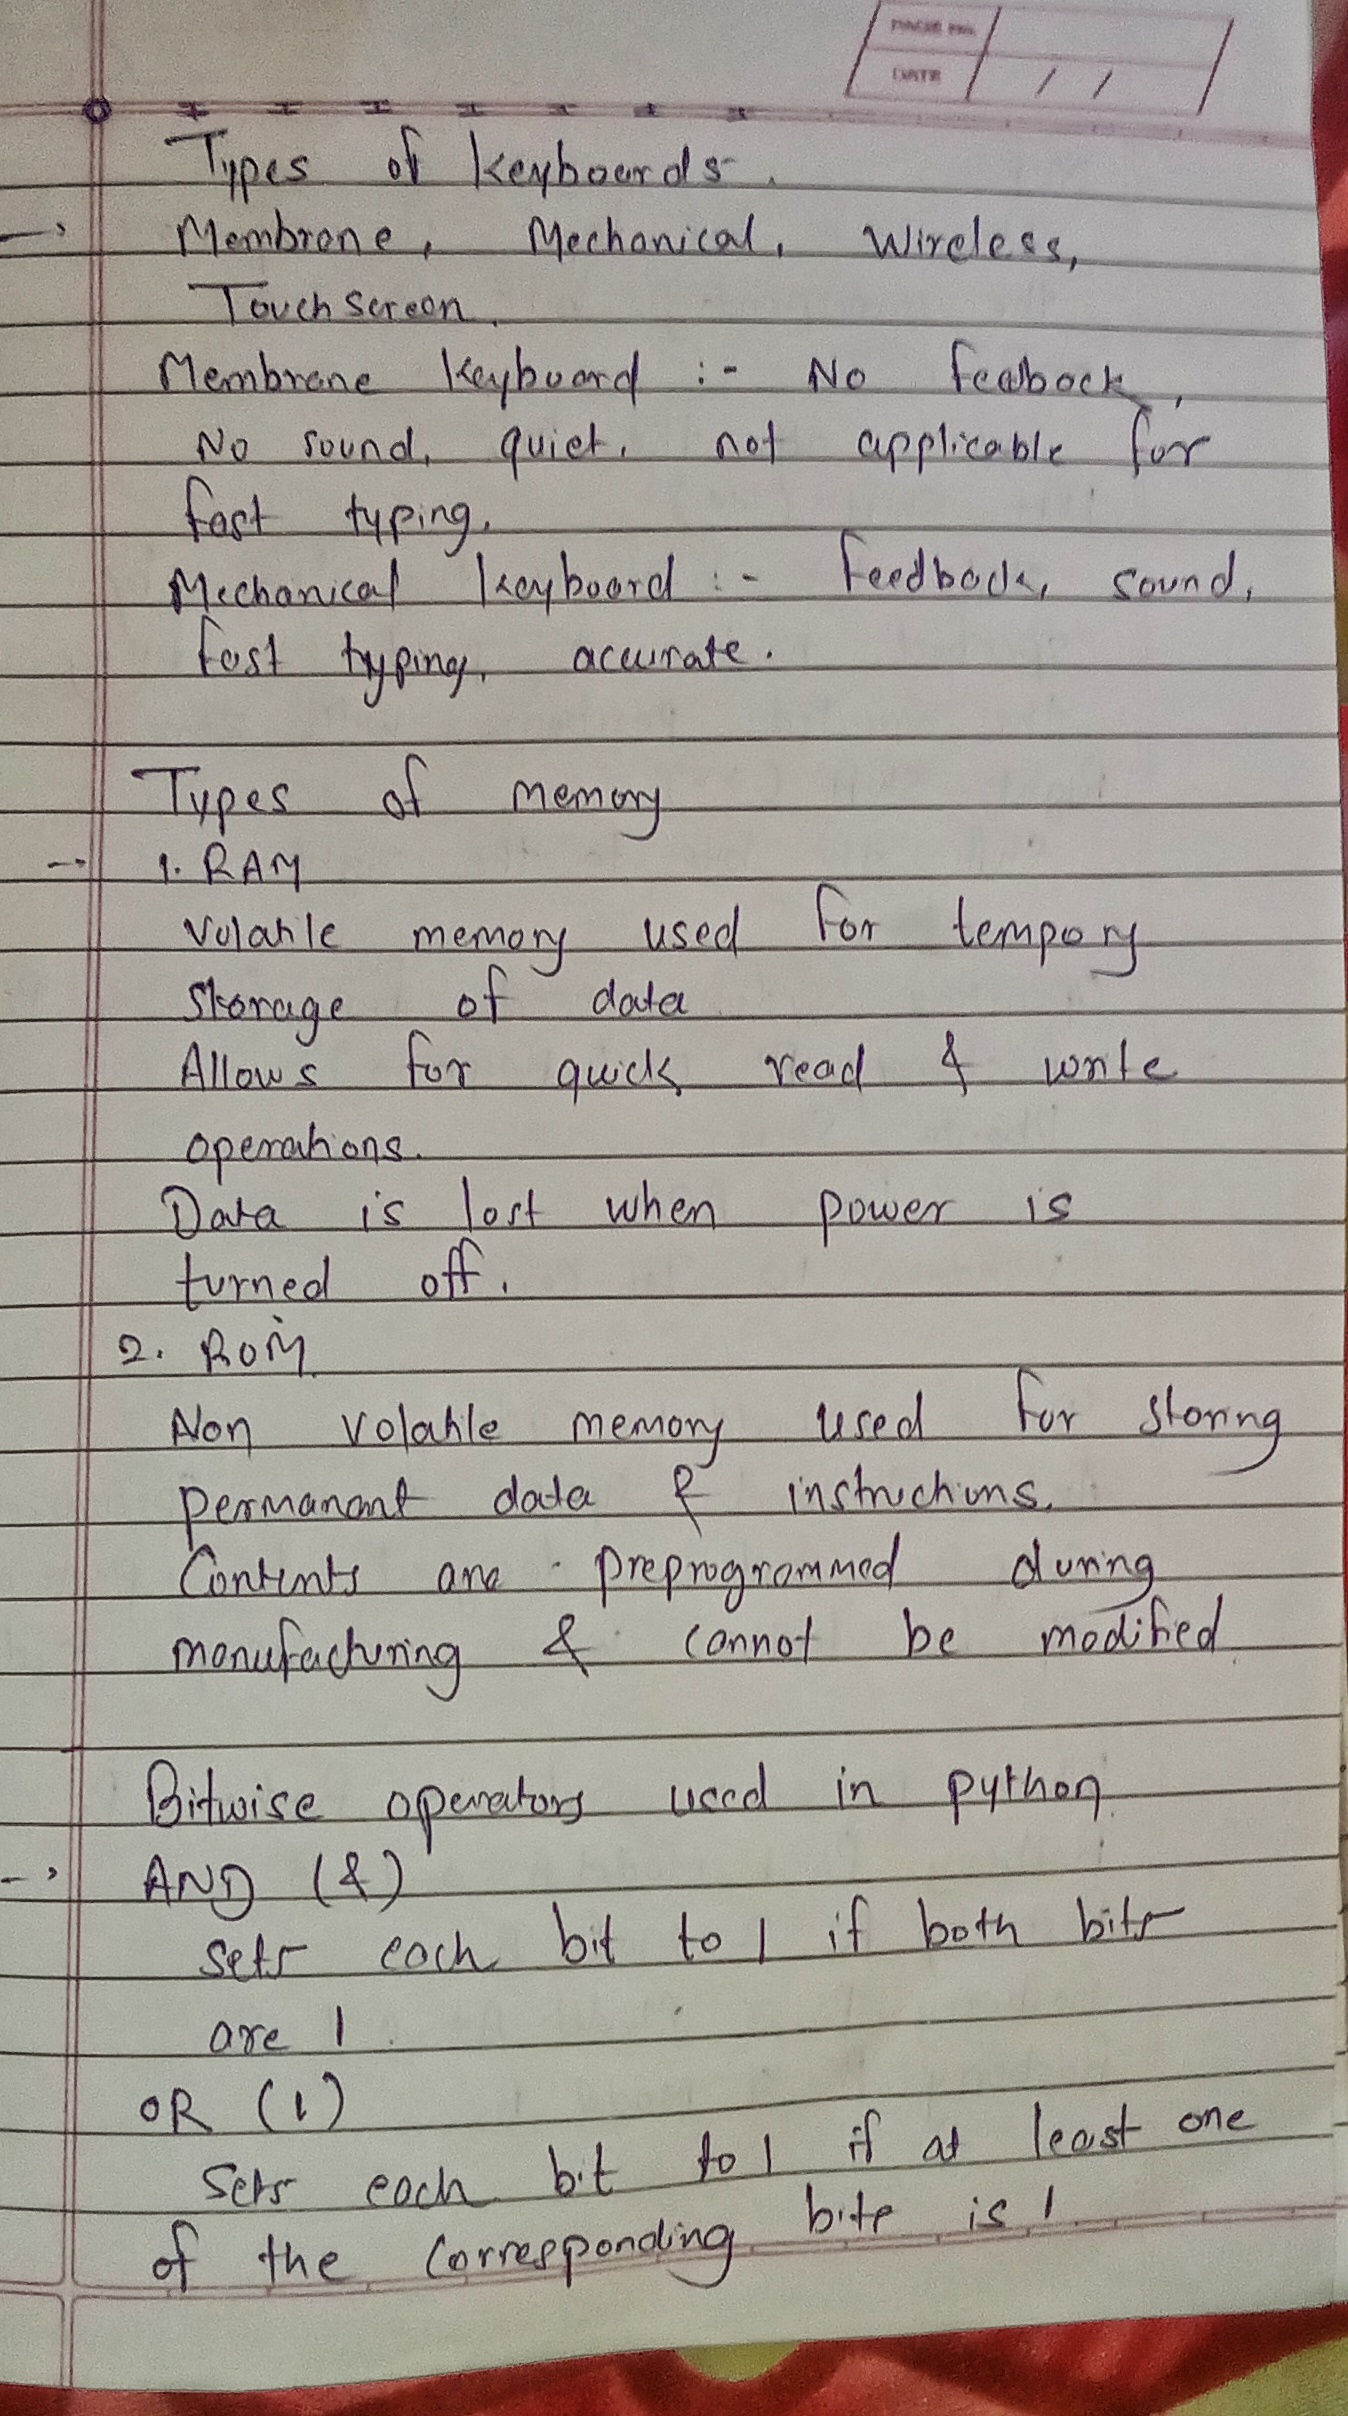 PAGE No.
DATE / /
Types of keyboards.
→ Membrane, Mechanical, Wireless,
Touch screen.
Membrane keyboard :- No feedback,
No sound, quiet, not applicable for
fast typing.
Mechanical keyboard :- feedback, sound,
fast typing, accurate.
Types of memory
→ 1. RAM
Volatile memory used for tempory
storage of data
Allows for quick read & write
operations.
Data is lost when power is
turned off.
2. ROM
Non volatile memory used for storing
permanant data & instructions.
Contents are preprogrammed during
manufacturing & cannot be modified
Bitwise operators used in python
→ AND (&)
sets each bit to 1 if both bits
are 1.
OR (|)
Sets each bit to 1 if at least one
of the corresponding bite is 1.